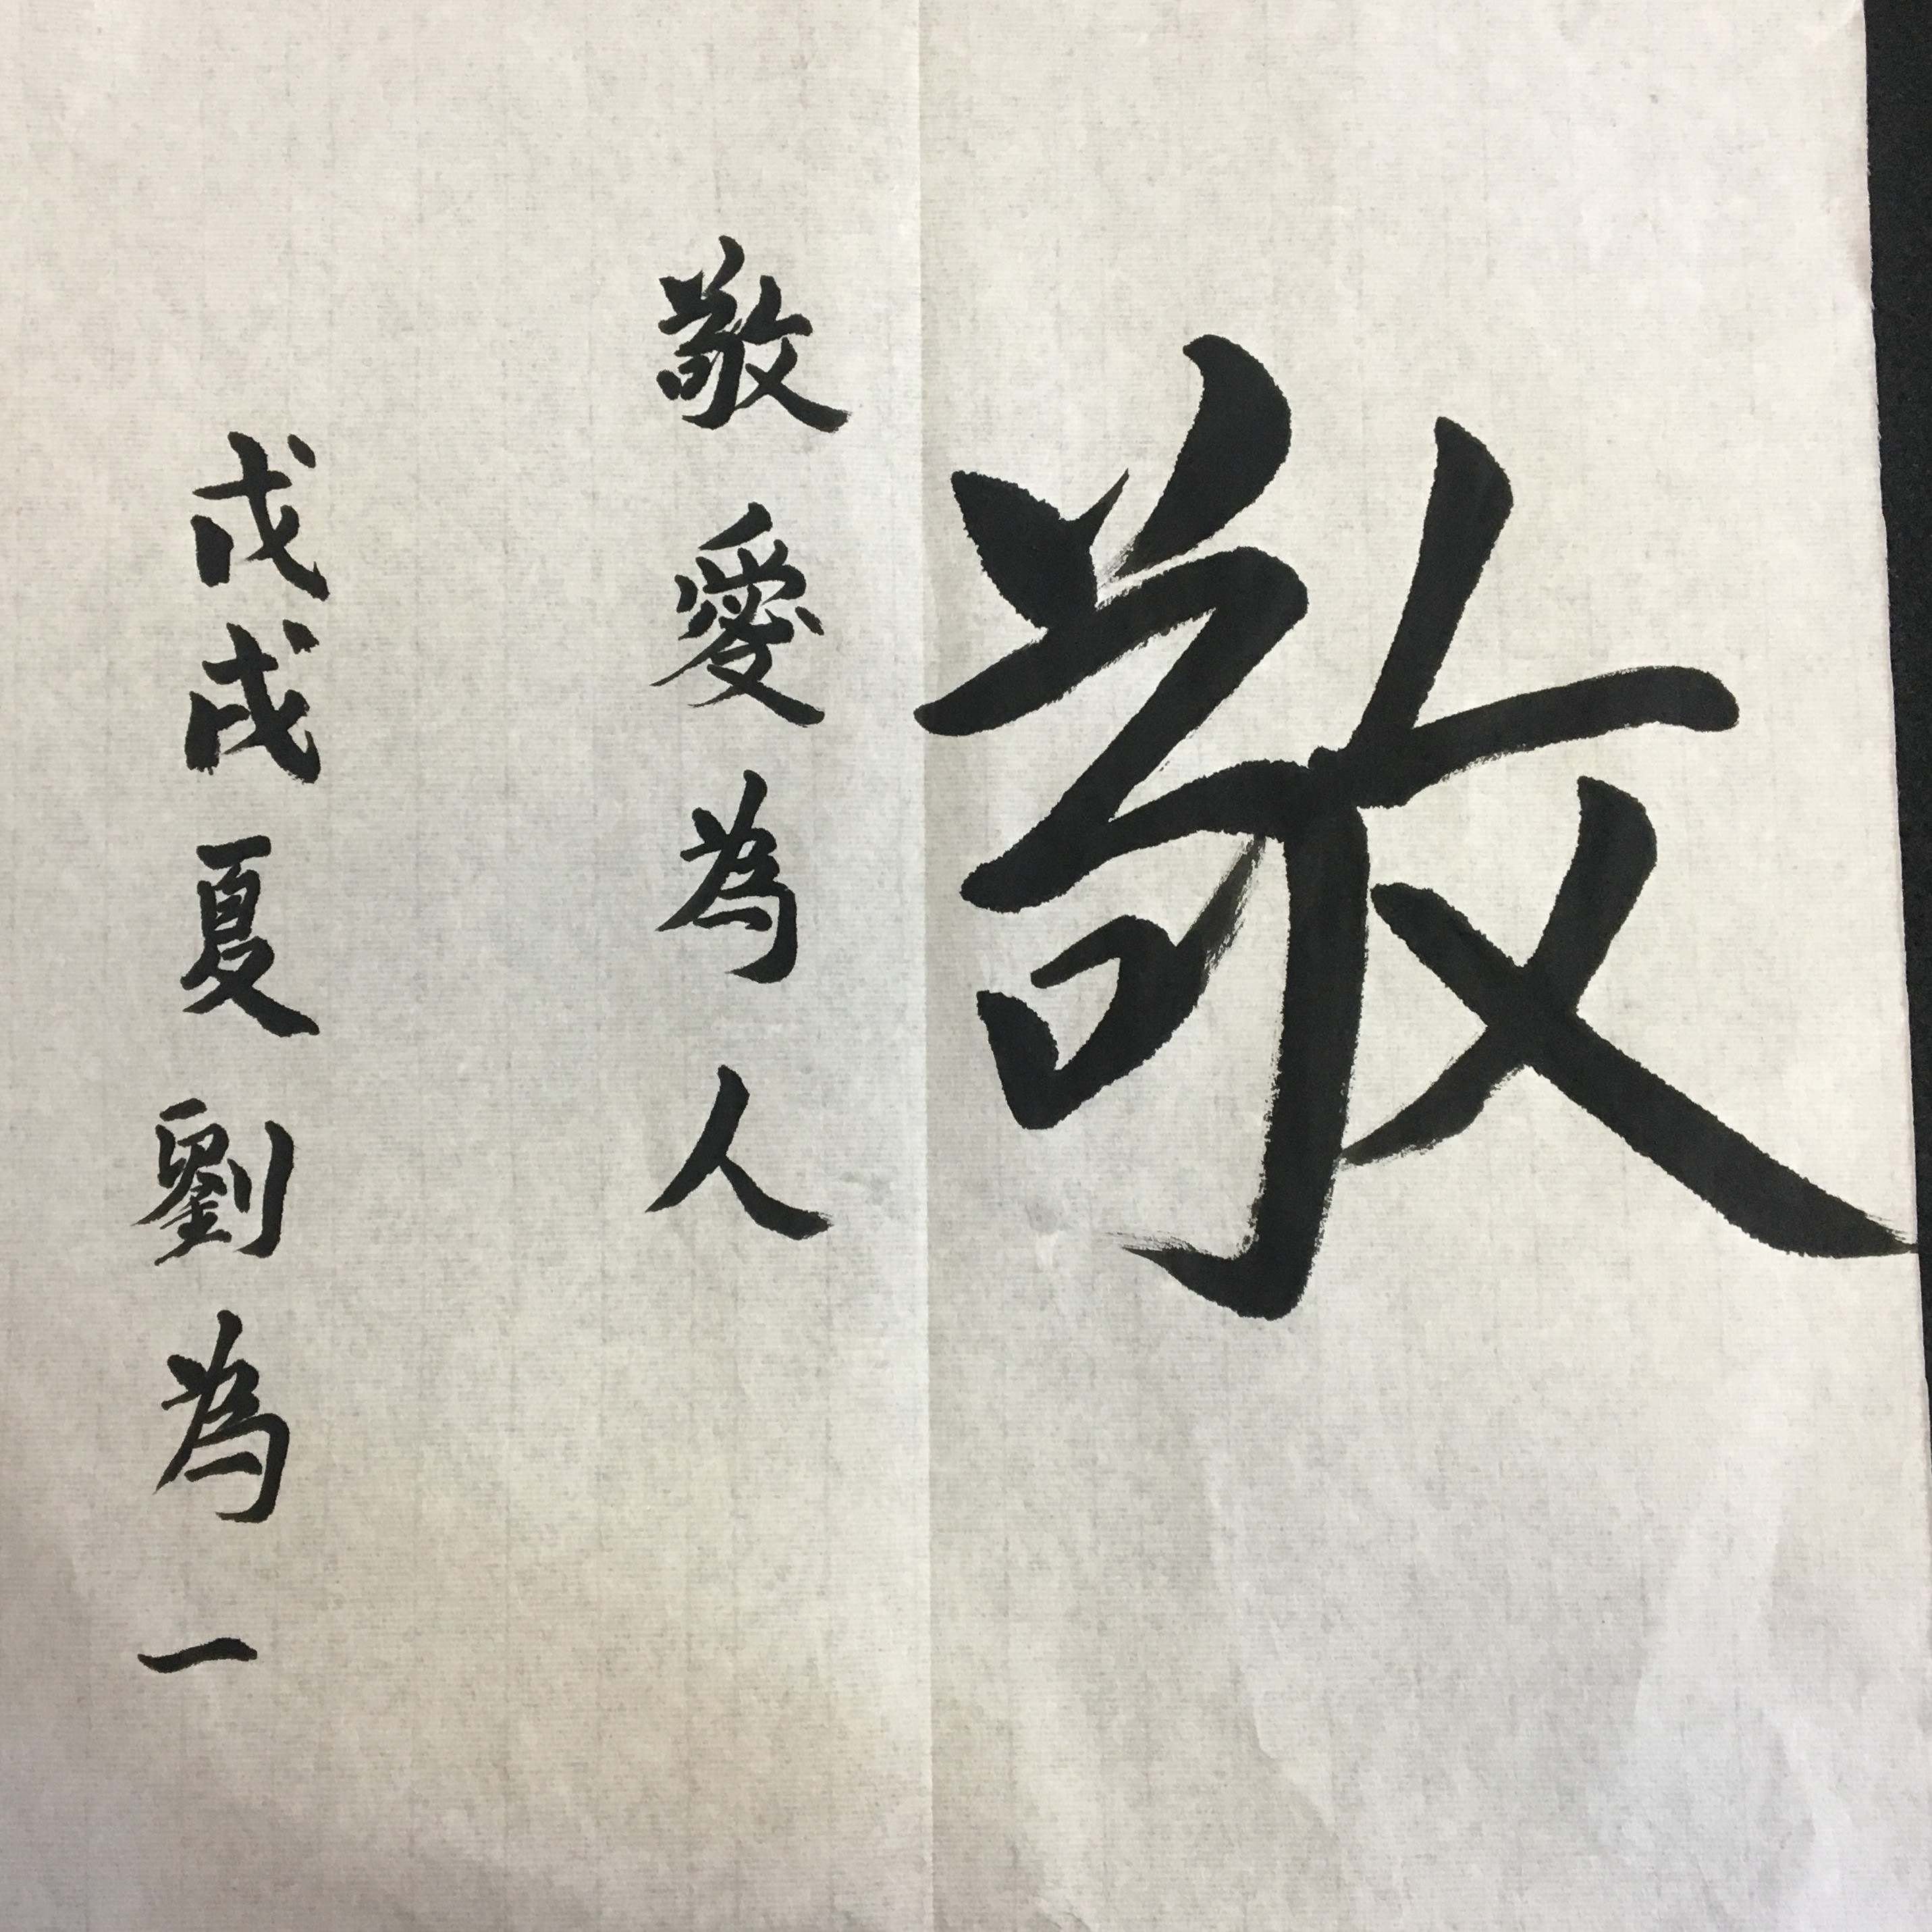 敬
敬愛為人
戊戌夏劉為一